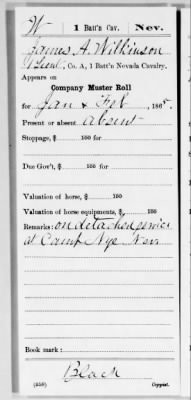 W 1 Batt'n Cav. Nev.
James A. Wilkinson
1 Lieut., Co. A, 1 Batt'n Nevada Cavalry.
Appears on
Company Muster Roll
for Jan & Feb, 1865.
Present or absent absent
Stoppage, $ 100 for
Due Gov't, $ 100 for
Valuation of horse, $ 100
Valuation of horse equipments, $ 100
Remarks: on detached service
at Camp Nye Nev
Book mark:
Black
(358) Copyist.